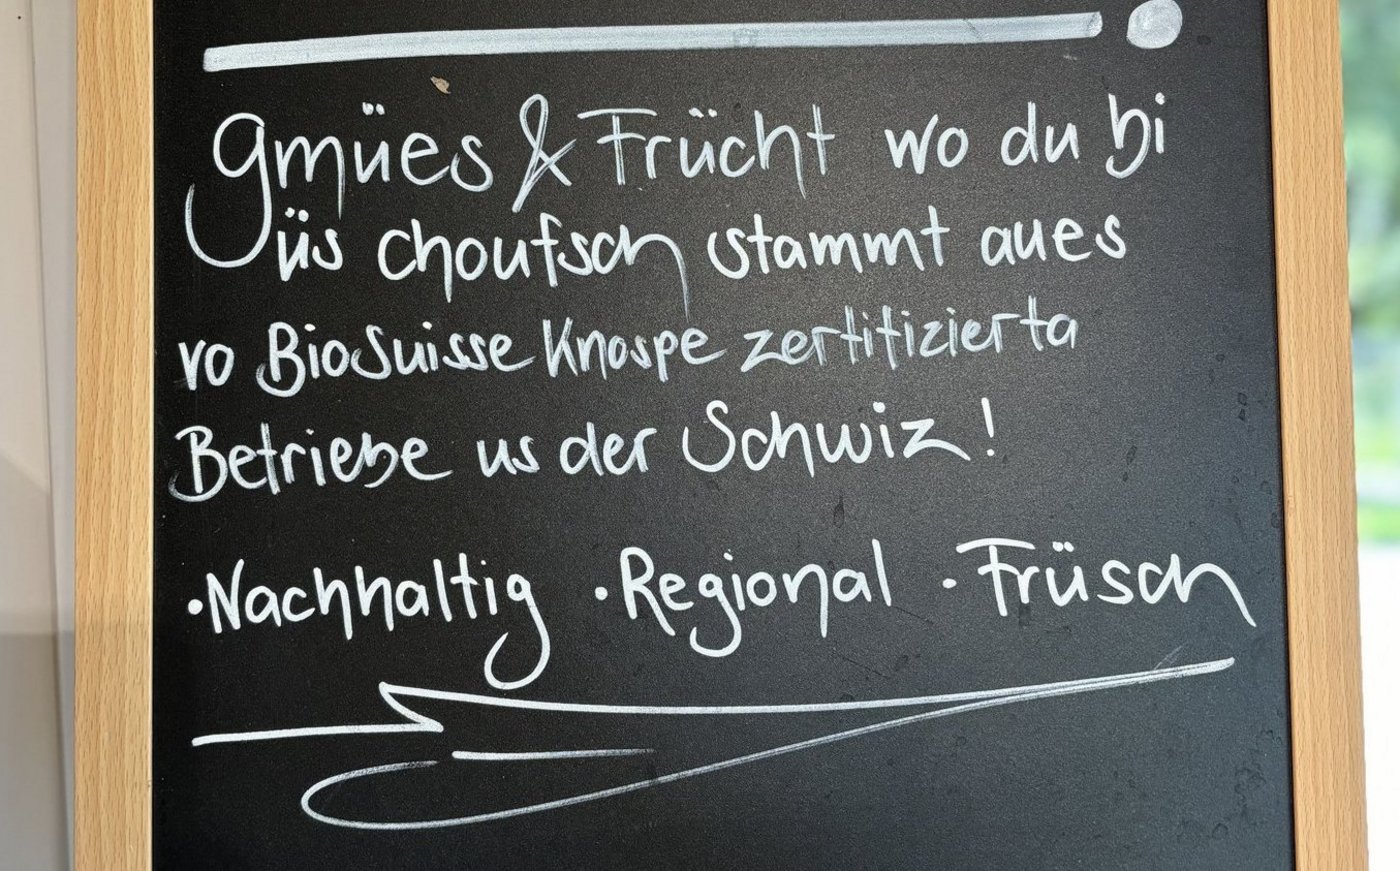 gmües & Frücht wo du bi
üs choufsch stammt aues
vo BioSuisse Knospe zertifizierta
Betriebe us der Schwiz!
•Nachhaltig •Regional •Früsch